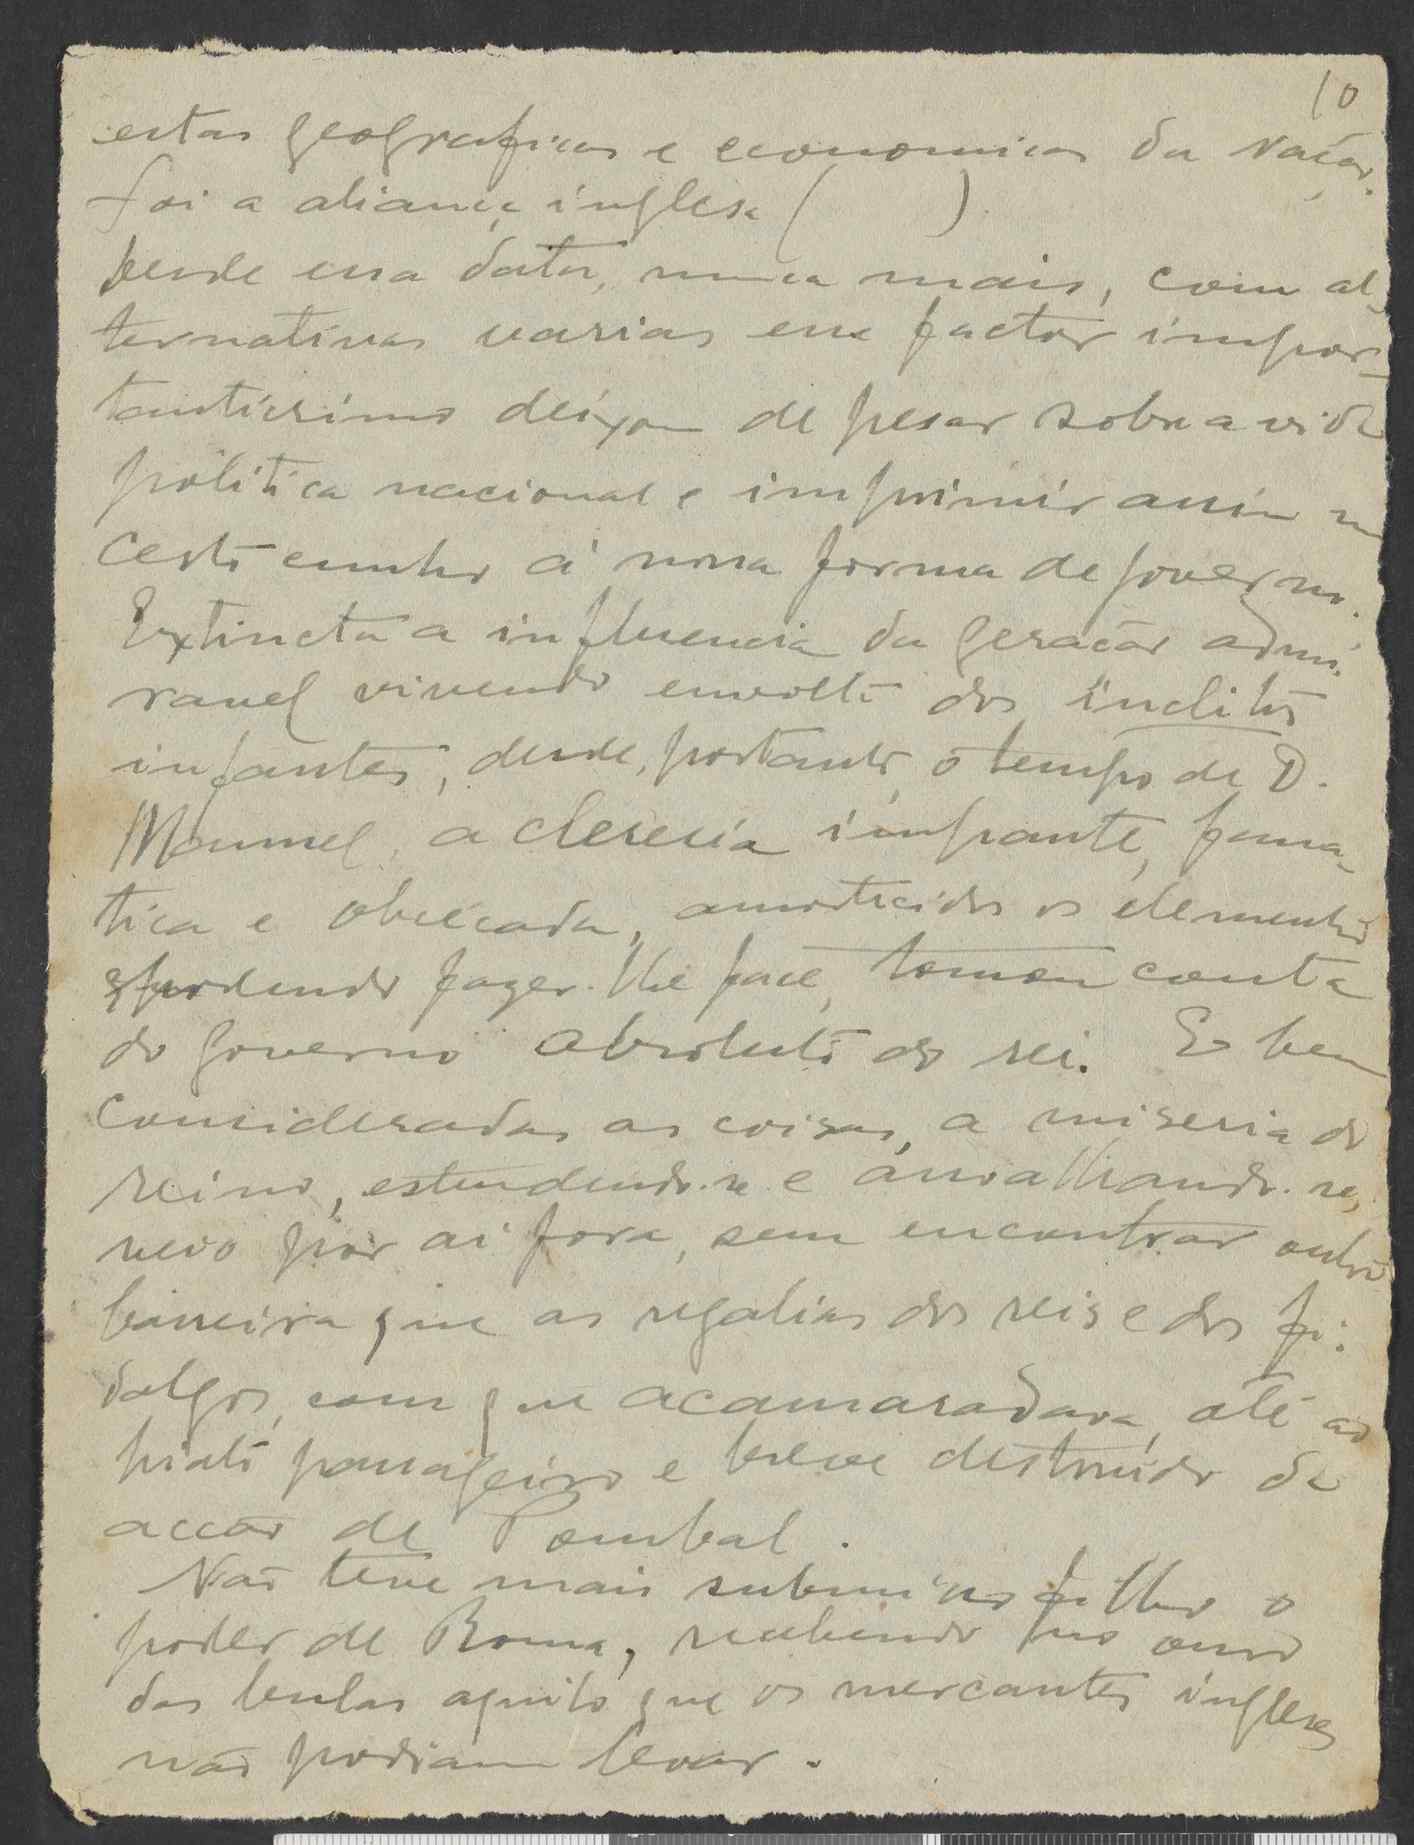 10
estas geograficas e economicas da Nação.
foi a aliança inglesa (          )
Desde essa data, nunca mais, com al-
ternativas varias esse factor impor-
tantissimo deixou de pesar sobre a vida
politica nacional e imprimir assim um
certo cunho á nossa forma de governo.
Extincta a influencia da geração admi-
ravel vivendo em volta dos inclitos
infantes, desde, portanto, o tempo de D.
Manuel, a cleresia impante, fana-
tica e obcecada, amortecidos os elementos
podendo fazer-lhe face, tomou conta
do governo absoluto do rei. E bem
consideradas as coisas, a miseria do
reino, estendendo-se e
veio por ai fora, sem encontrar outra
barreira que as regalias dos reis e dos fi-
dalgos, com que acamaradava, até ao
hiato passageiro e breve destruido da
acção de Pombal.
Não teve mais submisso filho o
poder de Roma, recebendo no ouro
das bulas aquilo que os mercantes ingleses
não podiam levar.